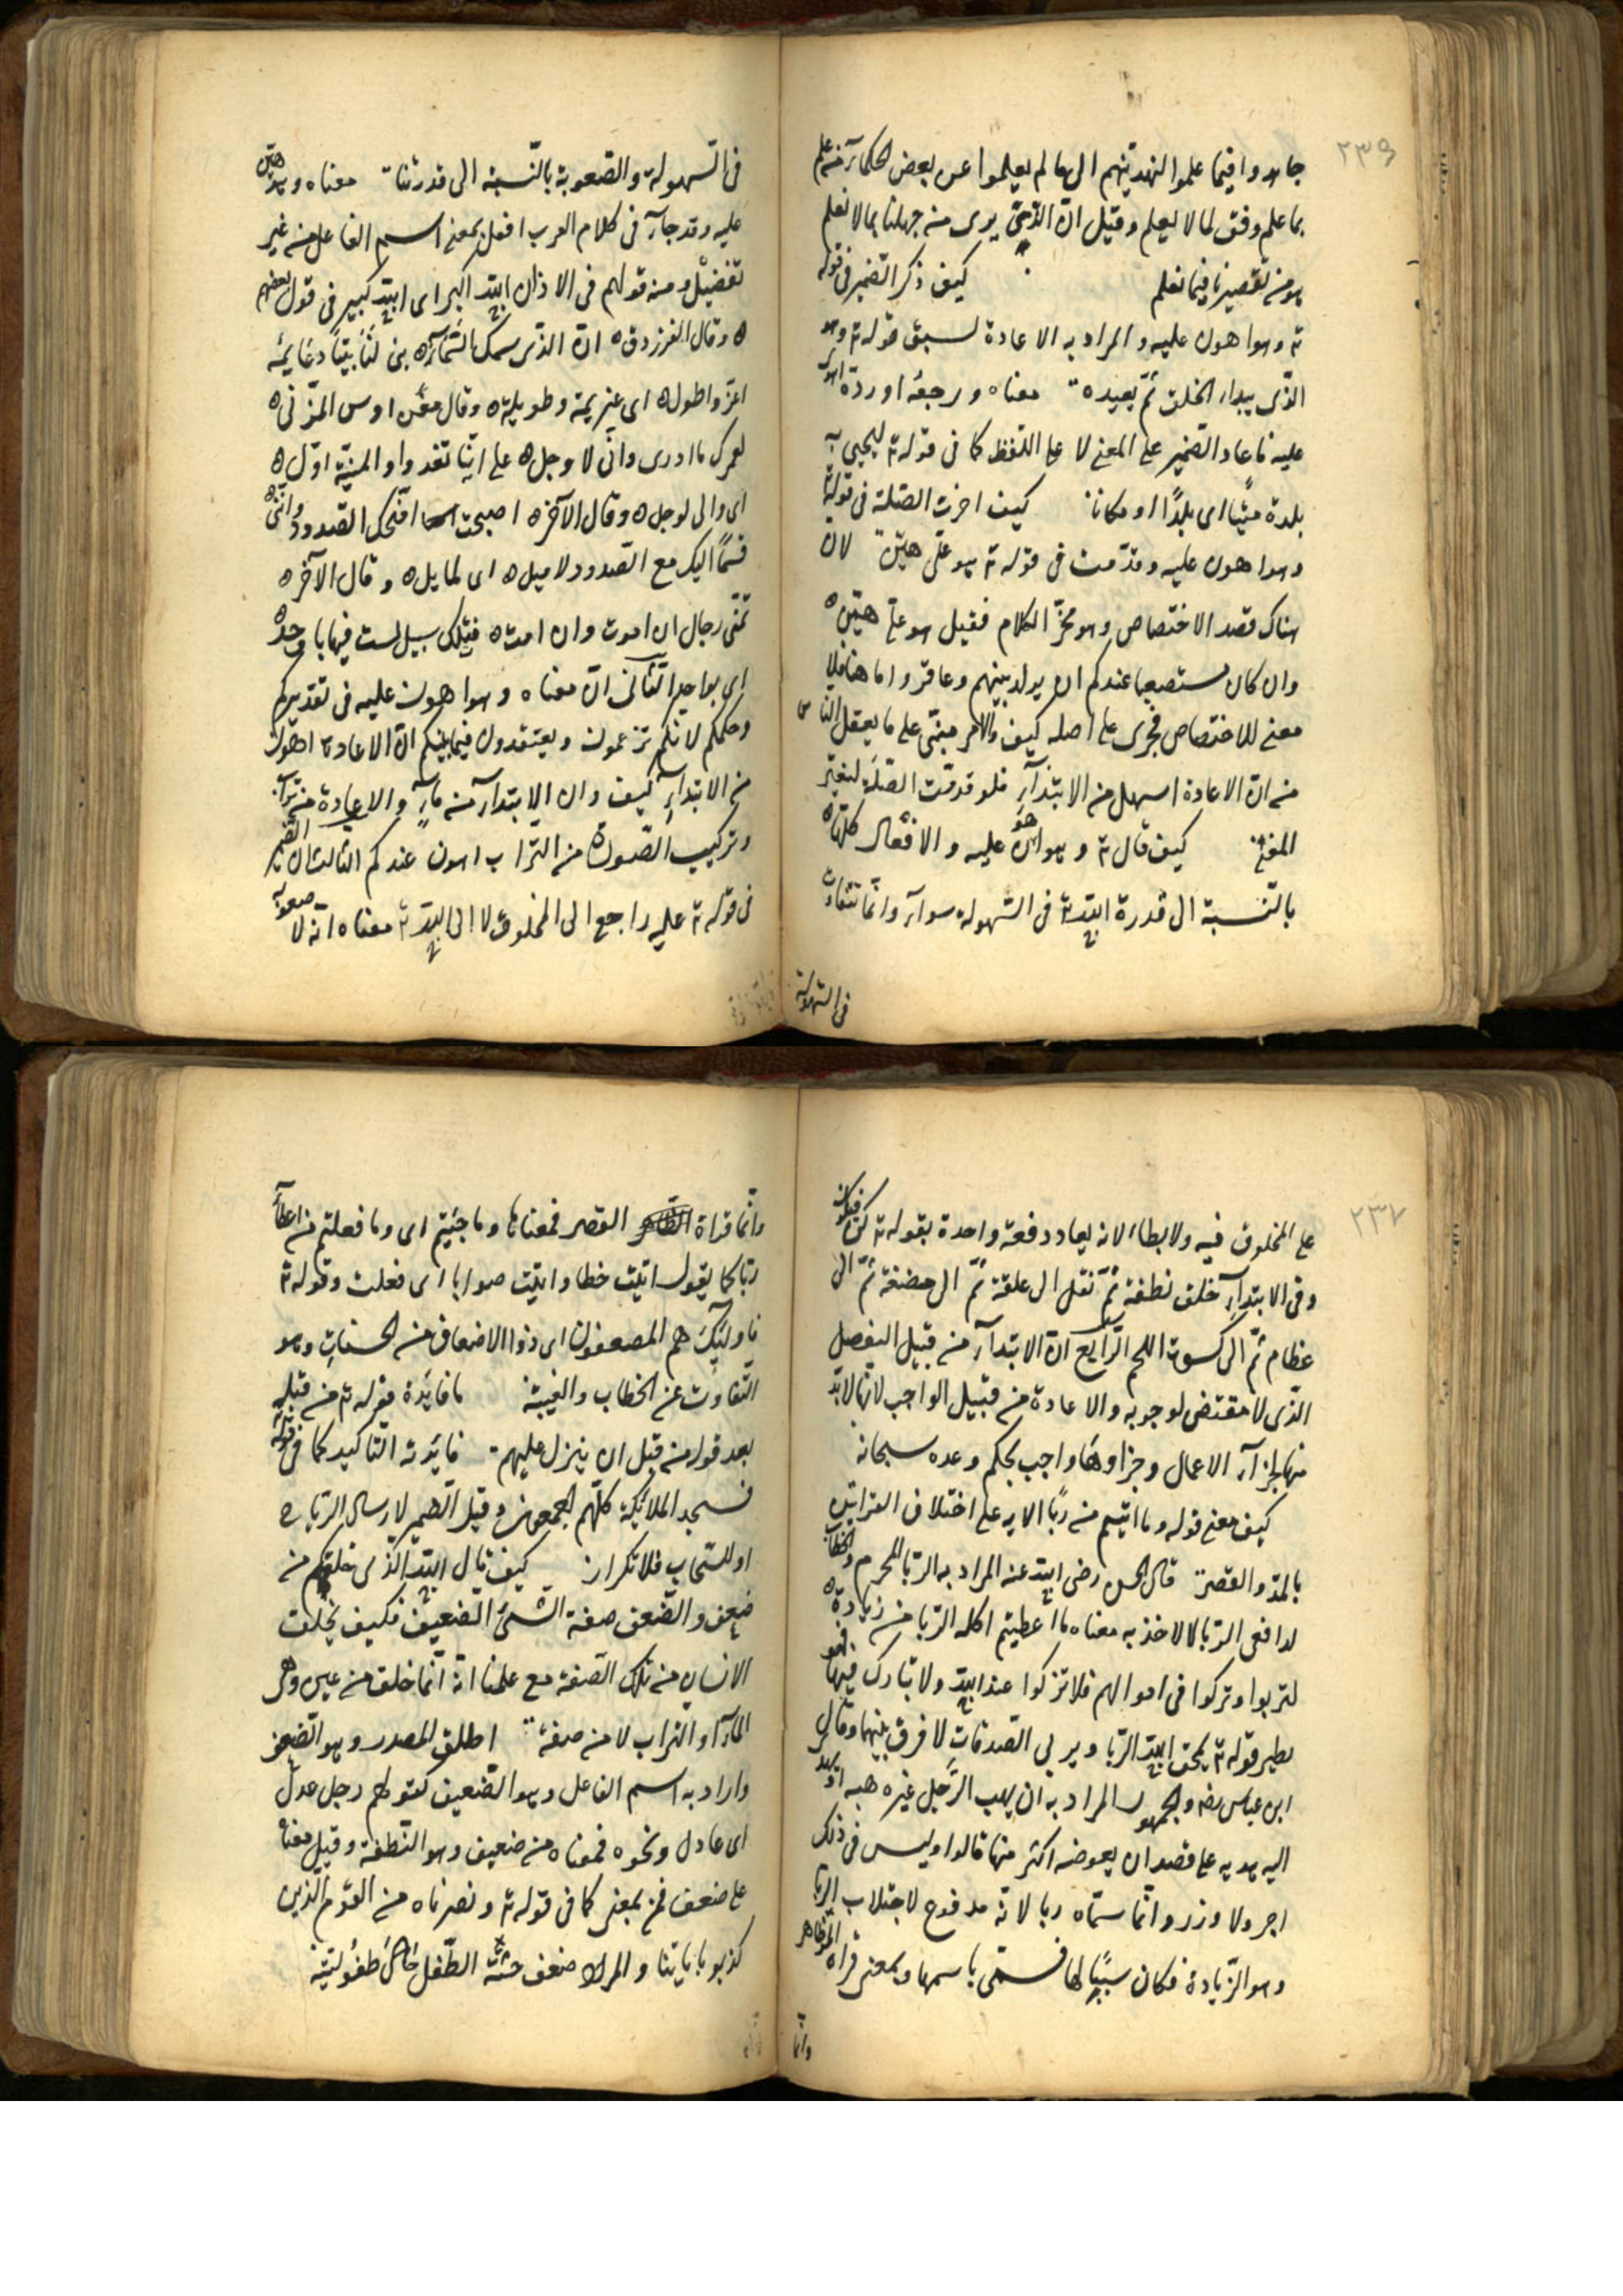 ٢٣٩
جاهدوا فيما علموا لنهدينهم الى ما لم يعلموا عن بعض الحكمآء من علم
بما علم وفق لما لا يعلم وقيل انّ الذى يرى من جهلنا بما لا نعلم
هو من تقصيرنا فيما نعلم كيف ذكر الضمير فى قوله
تع وهو اهون عليه و المراد به الاعادة لسبق قوله تع وهو
الّذى يبدء الخلق ثمّ يعيده معناه ورجعه او ردّه اهون
عليه فاعاد الضمير على المعنى لا على اللفظ كما فى قوله تع ليحيى به
بلدة ميتًا اى بلدًا او مكانا كيف اخرت الصّلة فى قوله
وهو اهون عليه وقدّمت فى قوله تع هو علىّ هيّن لان
هناك قصد الاختصاص وهو محزّ الكلام فقيل هو علىّ هيّن
وان كان مستصعبا عندكم ان يولد بين هم وعاقر واما هنا فلا
معنى للاختصاص فجرى على اصله كيف والامر مبنّى على ما يعقل الناس
من انّ الاعادة اسهل من الابتدآء فلو قدّمت الصّلة لتغيّر
المعنى كيف قال تع وهو اهون عليه و الافعال كلّها
بالنّسبة الى قدرة الله تع فى السّهولة سوآء وانّما تتفاوت
فى السّهولة
فى السّهولة والصّعوبة بالنّسبة الى قدرتنا معناه وهو هيّن
عليه وقد جآء فى كلام العرب افعل بمعنى اسم الفاعل من غير
تفضيل ومنه قولهم فى الاذان الله اكبر اى الله كبير فى قول بعضهم
وقال الفرزدق انّ الذّى سمك السّمآء بنى لنا بيتًا دعايمه
اعزّ واطول اى عزيزة وطويلة وقال معن اوس المزنى
لعمرك ما ادرى وانّى لاوجل على ايّنا تغدوا المنيّة اوّل
اى والى لوجل وقال الآخر اصبحت امنحك الصّدود وانّنى
قسمًا اليك مع الصّدود لاميل اى لمايل و قال الآخر
تمنّى رجال ان اموت وان امت فتلك سبيل لست فيها باوحد
اى بواحد الثّانى انّ معناه وهو اهون عليه فى تقديركم
وحكمكم لانّكم تزعمون وتعتقدون فيما بينكم انّ الاعادة اهون
من الابتدآء كيف وان الابتدآء من مآء والاعادة من تراب
وتركيب الصّورة من التراب اهون عندكم الثالث ان الضّمير
فى قوله تع عليه راجع الى المخلوق لا الى الله تع معناه انّه لا صعوبة
٢٣٧
على المخلوق فيه ولا ابطاء لانه يعاد دفعة واحدة بقوله تع كن فيكون
وفى الابتدآء خلق نطفة ثمّ نقل الى علقة ثمّ الى مضغة ثمّ الى
عظام ثمّ الى كسوت اللحم الرّابع انّ الابتدآء من قبيل التفضل
الّذى لا مقتضى لوجوبه والاعادة من قبيل الواجب لانّها لا بدّ
منها لجزآء الاعمال وجزاوها واجب بحكم وعده سبحانه
كيف معنى قوله وما اتيتم من ربًا الايه على اختلاف القراتين
بالمدّ والقصر قال الحسن رضى الله عنه المراد به الرّبا المحرم والخطاب
لدافعى الرّبا لا لاخذيه معناه ما اعطيتم اكلة الرّبا من زيادة
لتربوا وتزكوا فى اموالهم فلا تزكوا عند الله ولا يبارك فيها فهو
نظير قوله تع يمحق الله الرّبا ويربى الصدقات لا فرق بينهما وقال
ابن عباس رض والجمهور المراد به ان يهب الرّجل غيره هبه او يهد
اليه هديه على قصد ان يعوضه اكثر منها قالوا وليس فى ذلك
اجر ولا وزر وانّما سمّاه ربا لانّه مدفوع لاجتلاب الرّبا
وهو الزّيادة فكان سببًا لها فسمّى باسمها وبمعنى قراة المدّ ظاهر
وانّما
وانّما قراة القصر فمعناها وما جئتم اى وما فعلتم من اعطآء
ربّا كما يقول اتيت خطا واتيت صوابا اى فعلت وقوله تع
فاولئك هم المضعفون اى ذوا الاضعاف من الحسنات وهو
التّفاوت عن الخطاب والغيبة ما فايدة قوله تع من قبله
بعد قوله من قبل ان ينزل عليهم فايدته التّاكيد كما فى قوله
فسجد الملائكة كلّهم اجمعون وقيل الضمير لارسال الرّياح
او للسّحاب فلا تكرار كيف قال الله الّذى خلقكم من
ضعف والضّعف صفة الشّئ الضّعيف فكيف يخلق
الانسان من تلك الصّفة مع علمنا انّه انّما خلق من عين وهو
المآء او التراب لا من صفة اطلق المصدر وهو الضّعف
واراد به اسم الفاعل وهو الضّعيف كقولهم رجل عدل
اى عادل ونحوه فمعناه من ضعيف وهو النّطفة وقيل معناه
على ضعف فمن بمعنى كما فى قوله تع ونصرناه من القوم الّذين
كذبوا باياتنا و المراد ضعف جثّة الطّفل حال طفوليّته